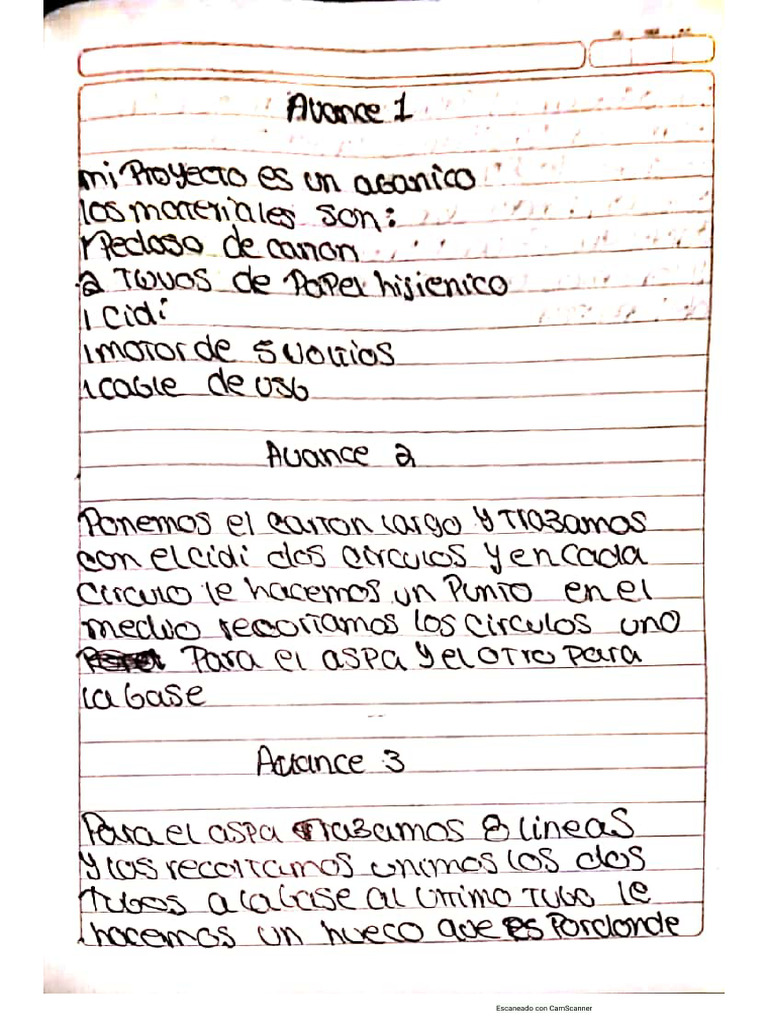 Avance 1
mi Proyecto es un abanico
los materiales son:
1 Pedaso de carton
2 Tuvos de Papel hijienico
1 cidi
1 motor de 5 voltios
1 cable de usb
Avance 2
Ponemos el carton largo y trazamos
con el cidi dos circulos y en cada
circulo le hacemos un Punto en el
medio recortamos los circulos uno
Para el aspa y el otro para
la base
Avance 3
Para el aspa trazamos 8 lineas
y las recortamos unimos los dos
tubos a la base al ultimo tubo le
hacemos un hueco que es Pordonde
Escaneado con CamScanner